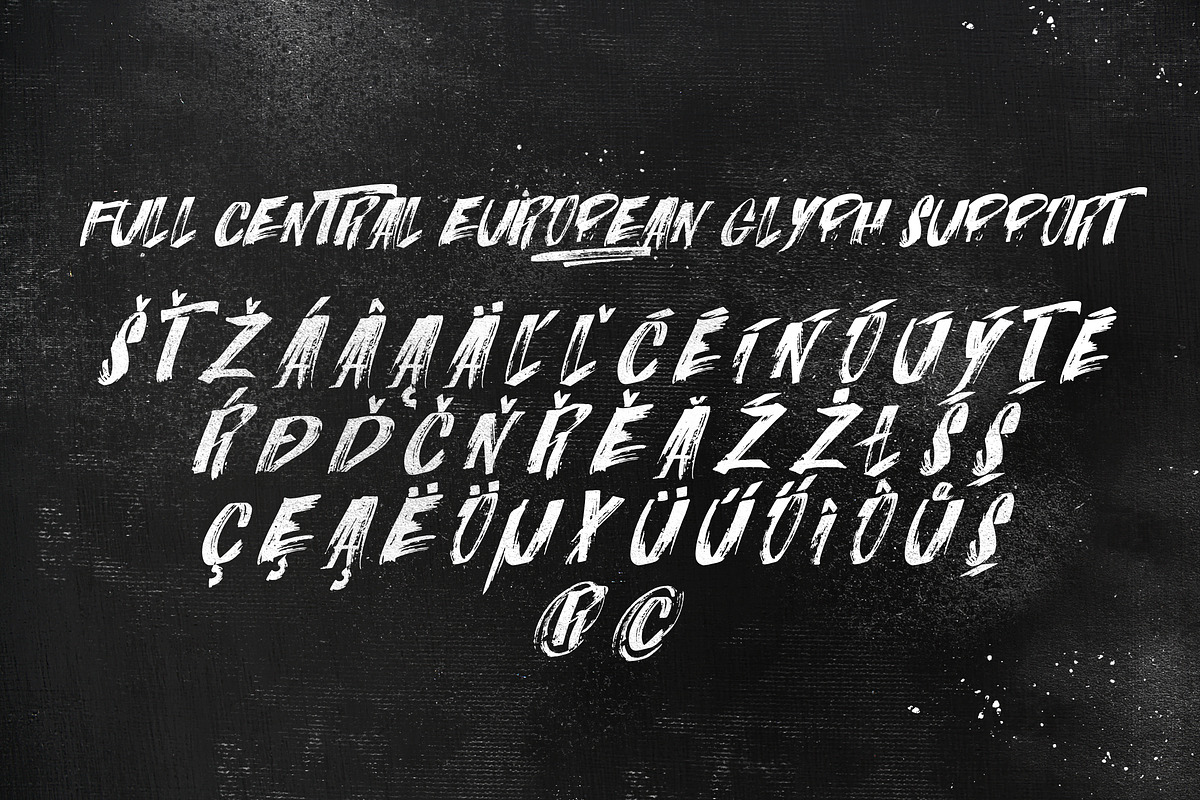 FULL CENTRAL EUROPEAN GLYPH SUPPORT
Š Ť Ž Á Â Ą Ä Ľ Ľ Ć É Í Ń Ó Ú Ý Ţ É
Ŕ Đ Ď Č Ň Ř Ě Ǎ Ź Ż Ł Ś Ş
Ç Ę Ą Ë Ö µ X Ü Ű Ő Î Ô Ů Ş
® ©